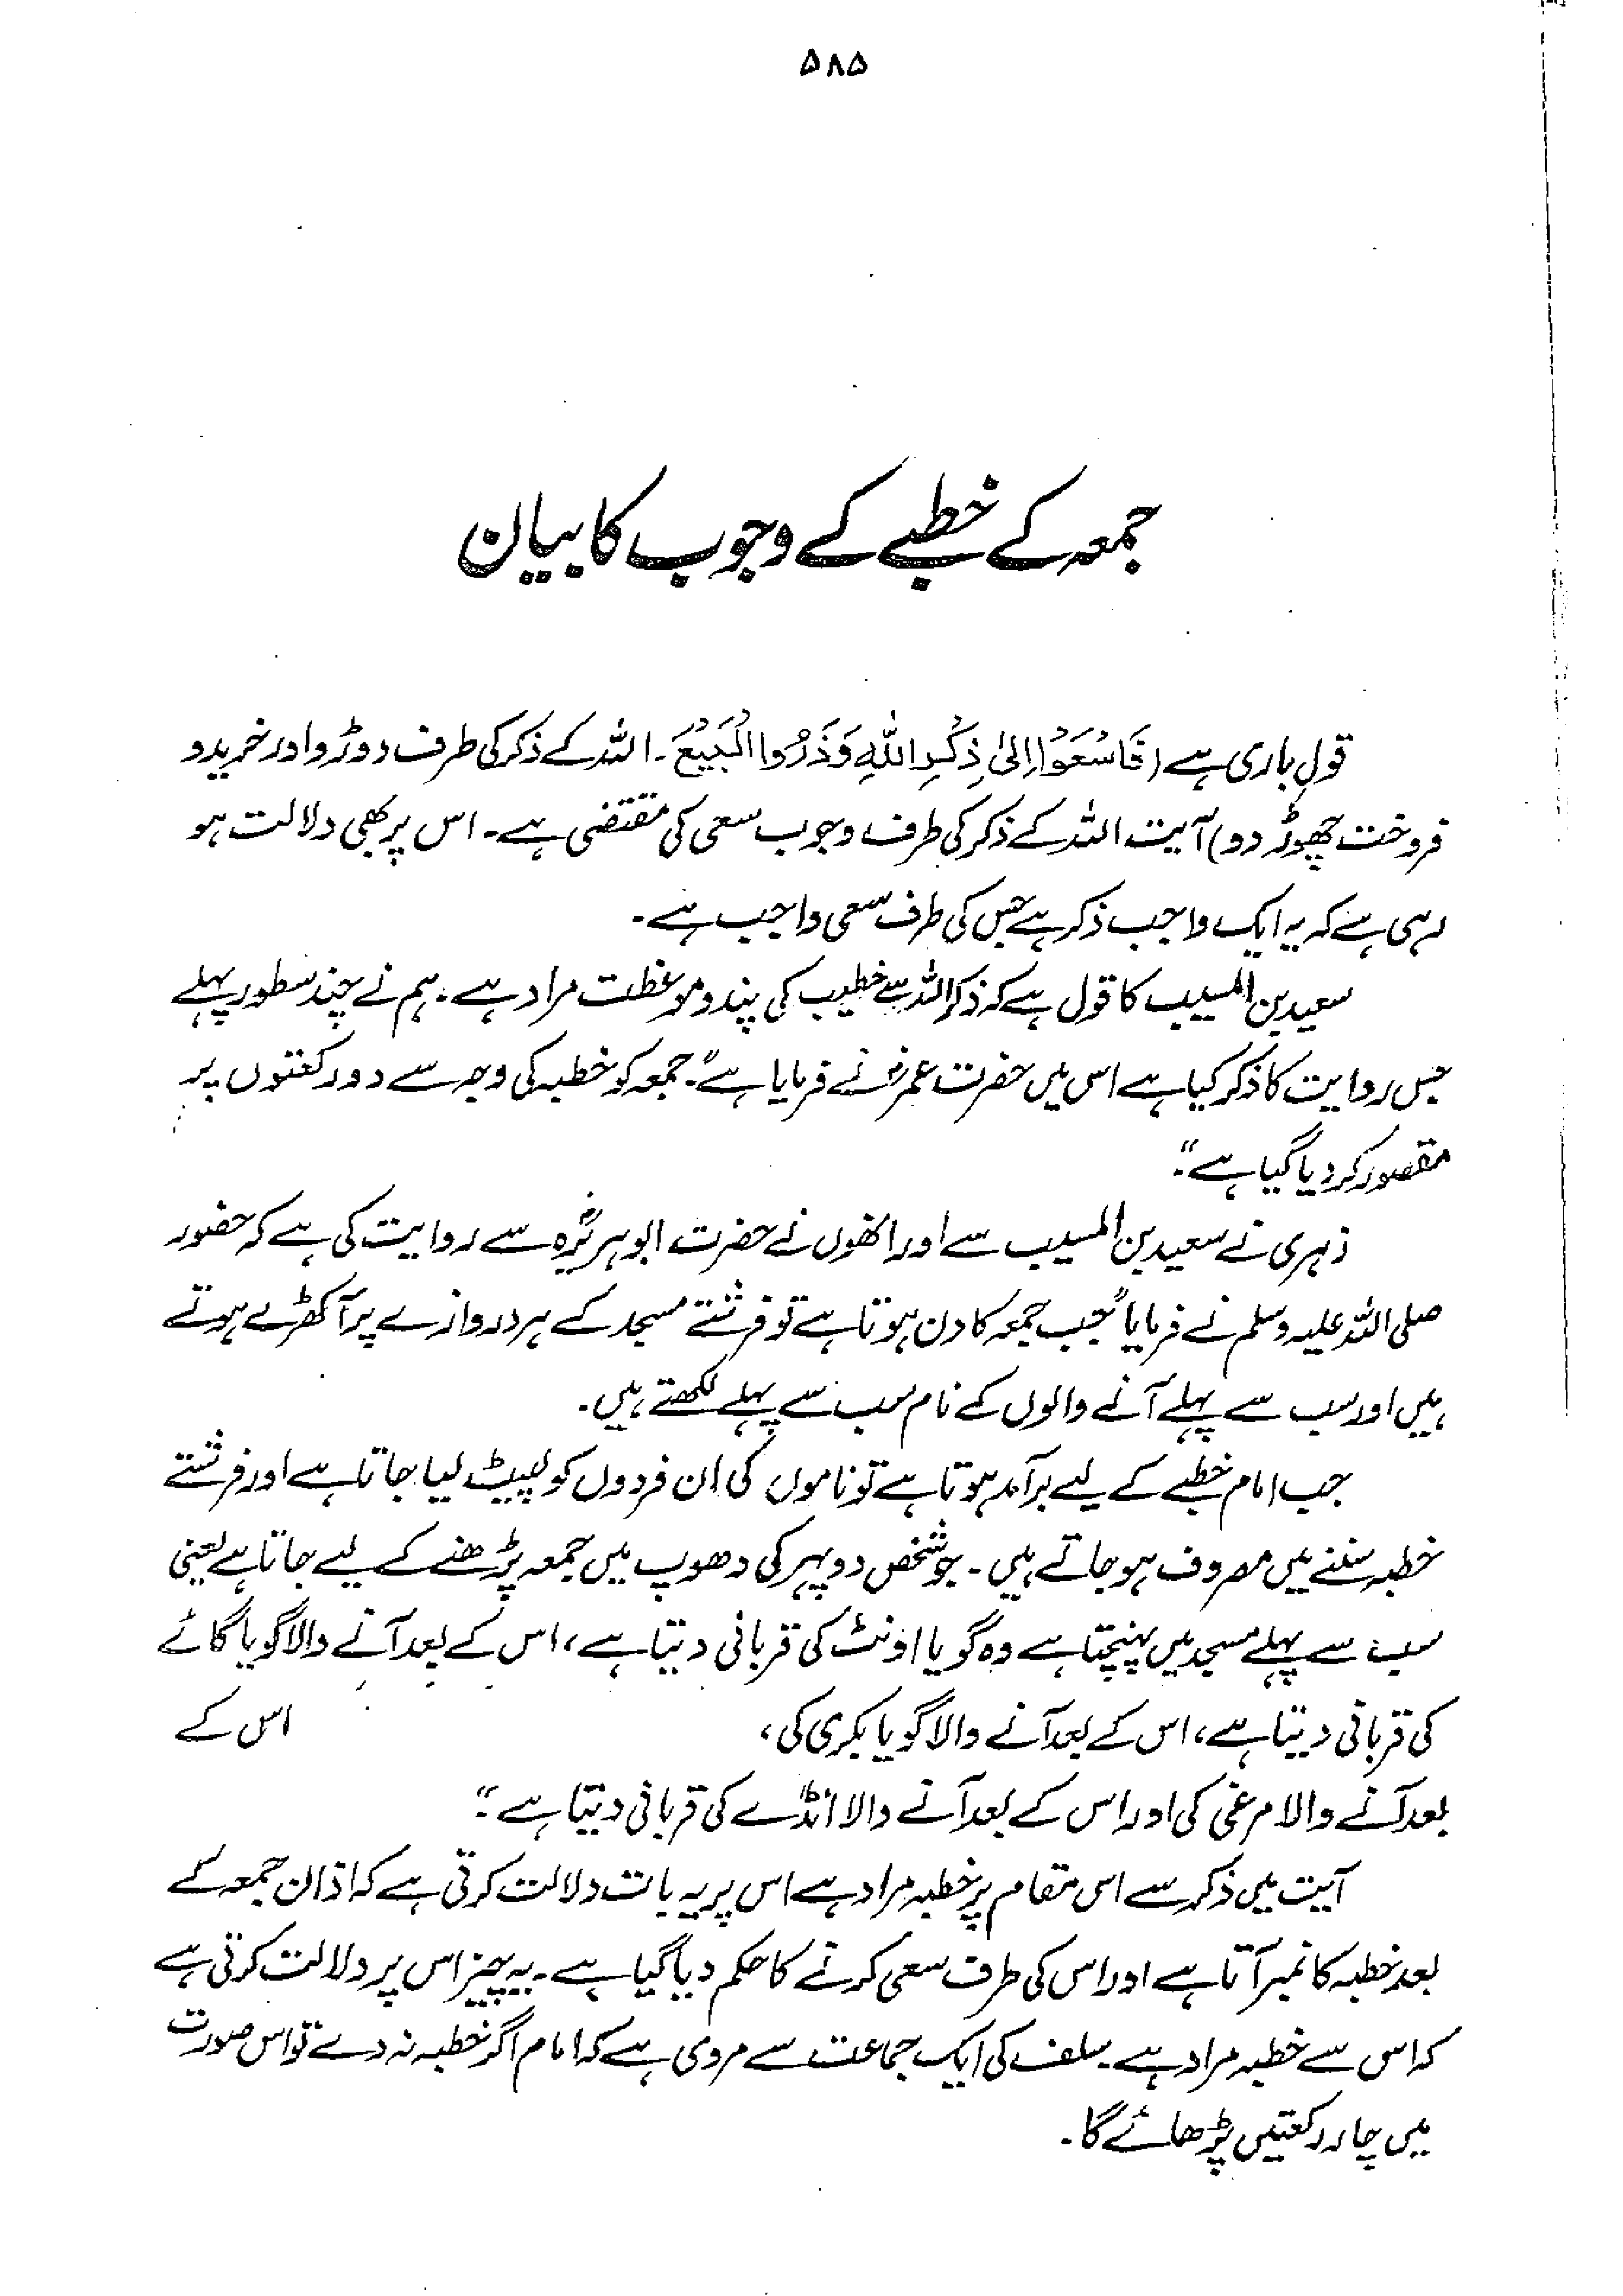 ۵۸۵
جمعہ کے خطبے کے وجوب کا بیان
قول باری ہے (فَاسْعَوْا اِلیٰ ذِکْرِ اللّٰہِ وَذَرُوا الْبَیْعَ۔ اللہ کے ذکر کی طرف دوڑو اور خرید و
فروخت چھوڑ دو) آیت اللہ کے ذکر کی طرف وجوب سعی کی مقتضی ہے۔ اس پر بھی دلالت ہو
رہی ہے کہ یہ ایک واجب ذکر ہے جس کی طرف سعی واجب ہے۔
سعید بن المسیب کا قول ہے کہ ذکر اللہ سے خطیب کی پند و موعظت مراد ہے۔ ہم نے چند سطور پہلے
جس روایت کا ذکر کیا ہے اس میں حضرت عمرؓ نے فرمایا ہے "۔ جمعہ کو خطبہ کی وجہ سے دو رکعتوں پر
مقصور کر دیا گیا ہے "۔
زہری نے سعید بن المسیب سے اور انھوں نے حضرت ابوہریرہؓ سے روایت کی ہے کہ حضور
صلی اللہ علیہ وسلم نے فرمایا "جب جمعہ کا دن ہوتا ہے تو فرشتے مسجد کے ہر دروازے پر آ کھڑے ہوتے
ہیں اور سب سے پہلے آنے والوں کے نام سب سے پہلے لکھتے ہیں۔
جب امام خطبے کے لیے برآمد ہوتا ہے تو ناموں کی ان فردوں کو لپیٹ لیا جاتا ہے اور فرشتے
خطبہ سننے میں مصروف ہو جاتے ہیں۔ جو شخص دوپہر کی دھوپ میں جمعہ پڑھنے کے لیے جاتا ہے یعنی
سب سے پہلے مسجد میں پہنچتا ہے وہ گویا اونٹ کی قربانی دیتا ہے، اس کے بعد آنے والا گویا گائے
کی قربانی دیتا ہے، اس کے بعد آنے والا گویا بکری کی، اس کے
بعد آنے والا مرغی کی اور اس کے بعد آنے والا انڈے کی قربانی دیتا ہے "۔
آیت میں ذکر سے اس مقام پر خطبہ مراد ہے اس پر یہ بات دلالت کرتی ہے کہ اذان جمعہ کے
بعد خطبہ کا نمبر آتا ہے اور اس کی طرف سعی کرنے کا حکم دیا گیا ہے۔ یہ چیز اس پر دلالت کرتی ہے
کہ اس سے خطبہ مراد ہے۔ سلف کی ایک جماعت سے مروی ہے کہ امام اگر خطبہ نہ دے تو اس صورت
میں چار رکعتیں پڑھائے گا۔